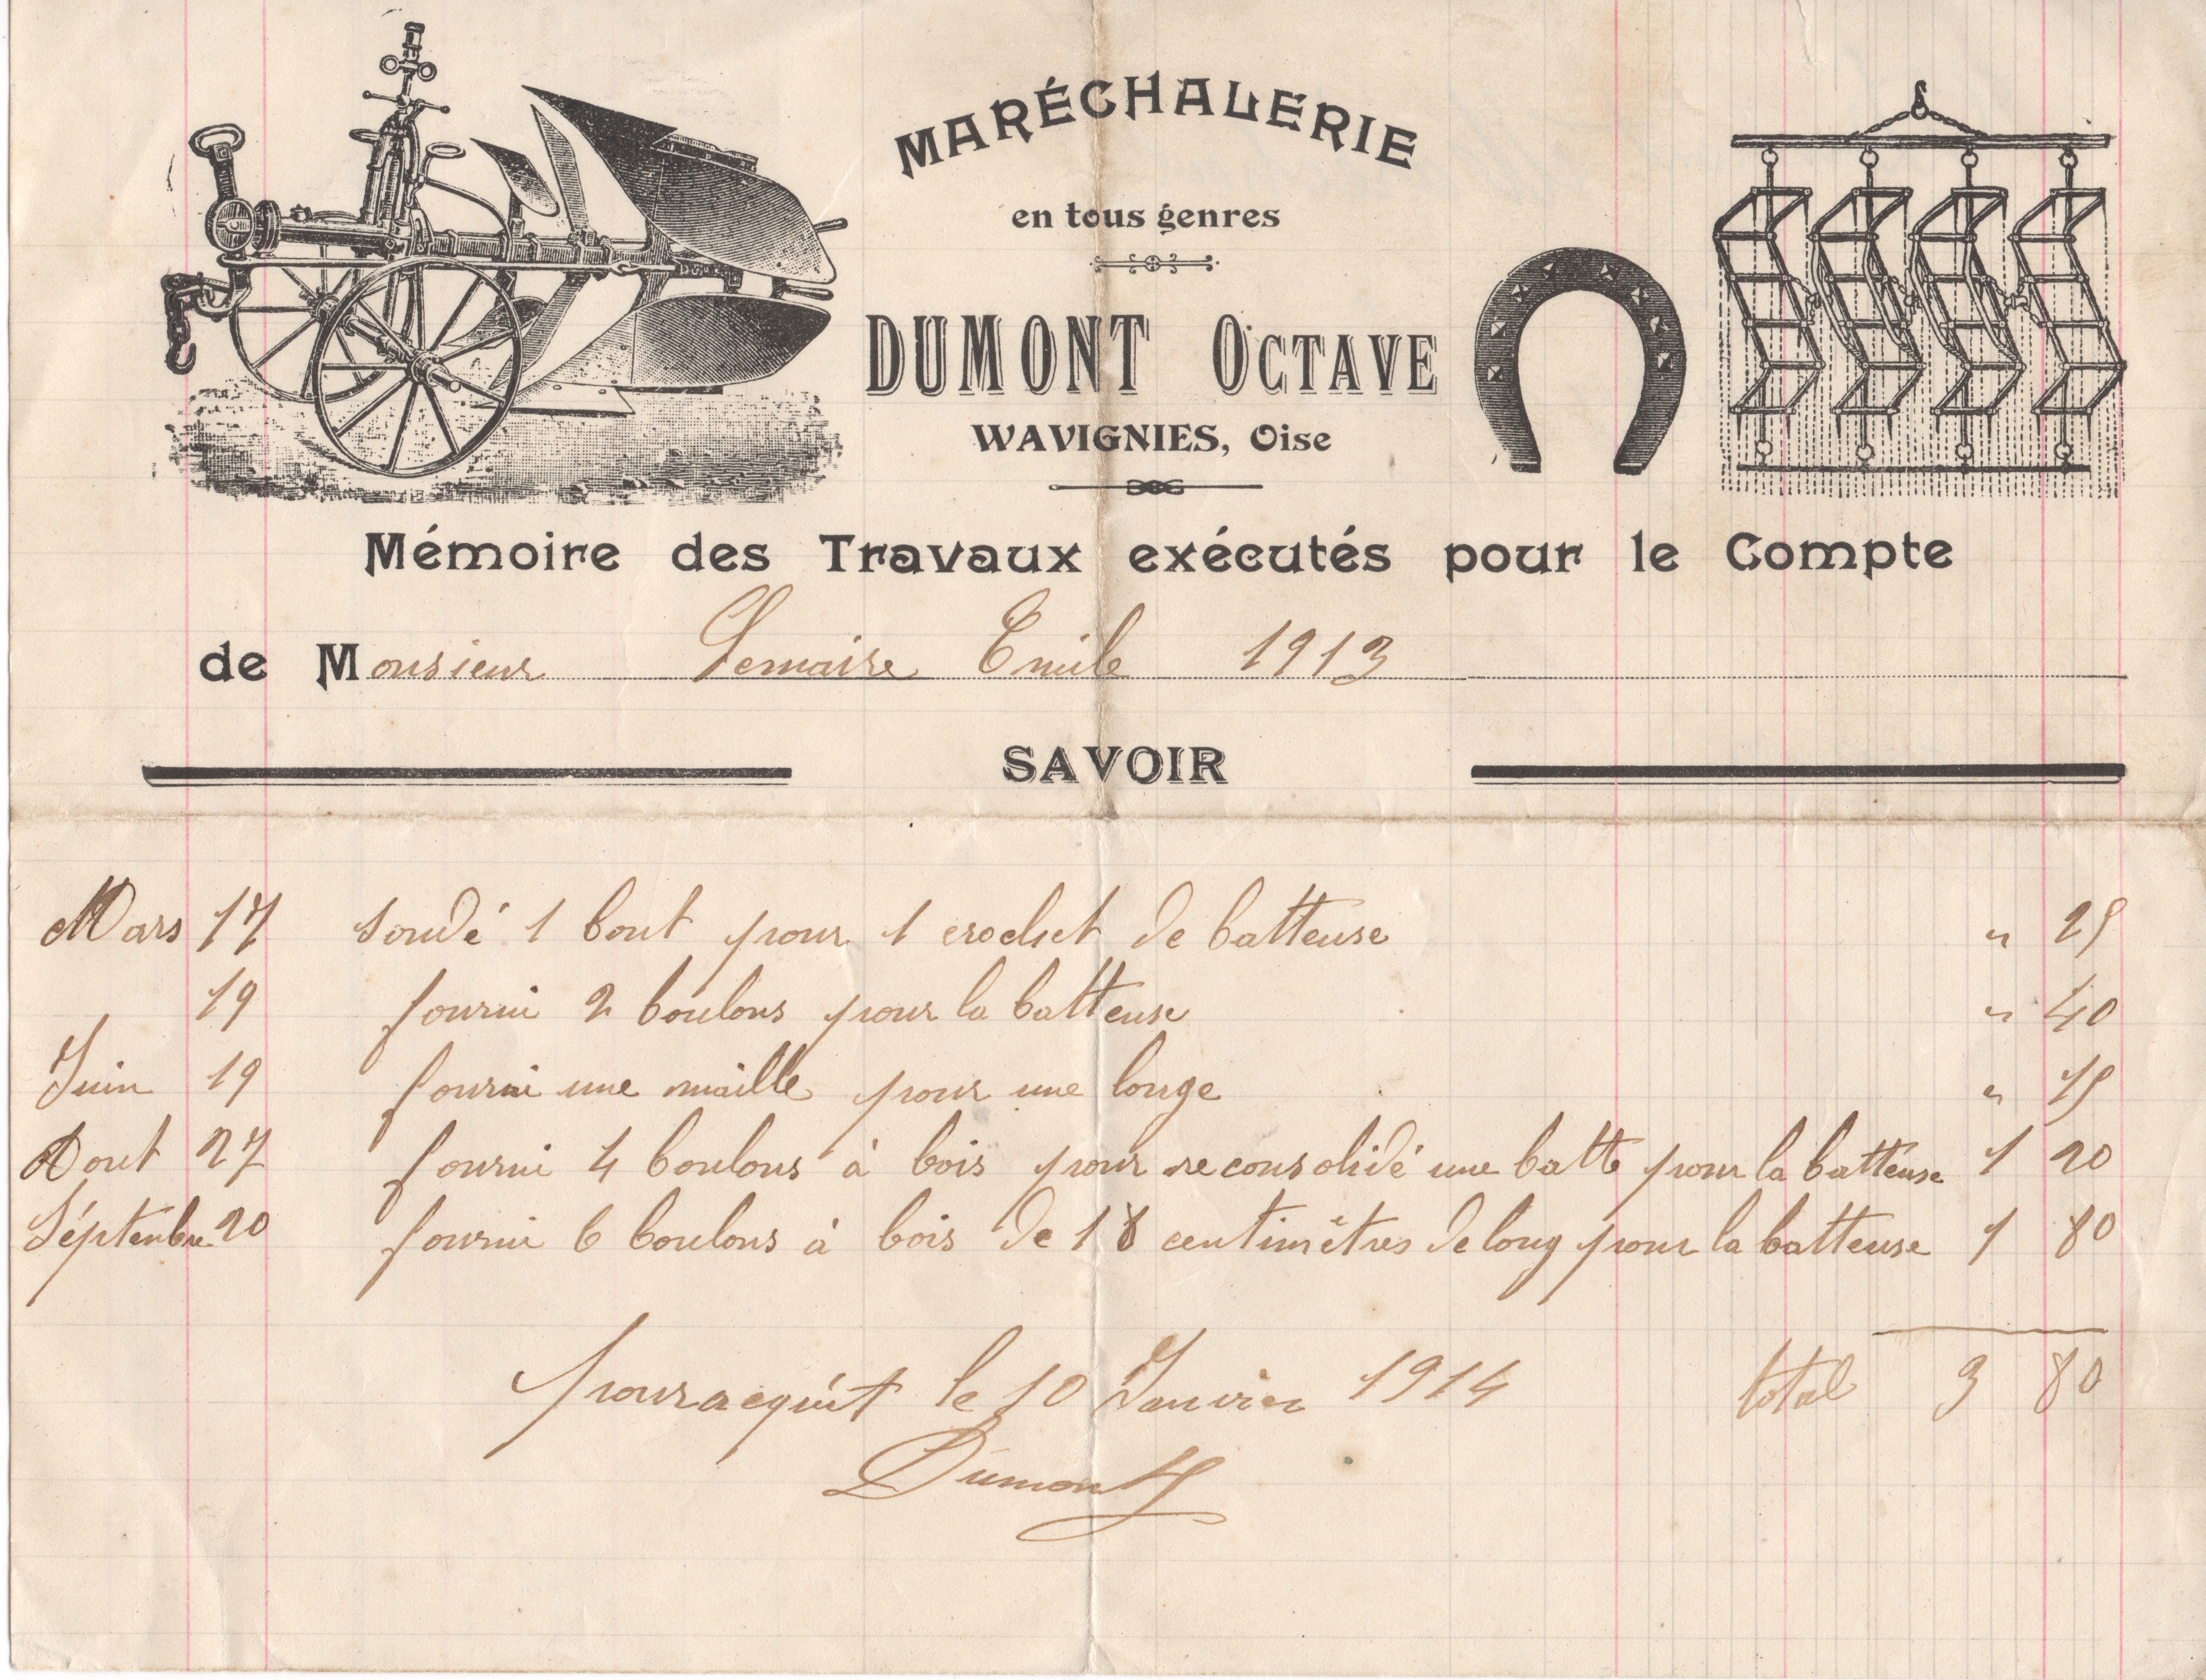 MARÉCHALERIE
en tous genres
DUMONT OCTAVE
WAVIGNIES, Oise
Mémoire des Travaux exécutés pour le Compte
de Monsieur Lemaire Emile 1913
SAVOIR
Mars 17 soudé 1 bout pour 1 crochet de batteuse " 25
19 fourni 2 boulons pour la batteuse " 40
Juin 19 fourni une maille pour une longe " 15
Aout 27 fourni 4 boulons à bois pour reconsolidé une batte pour la batteuse 1 20
Séptenbre 20 fourni 6 boulons à bois de 18 centimètres de long pour la batteuse 1 80
pour acquit le 10 Janvier 1914 total 3 80
Dumont